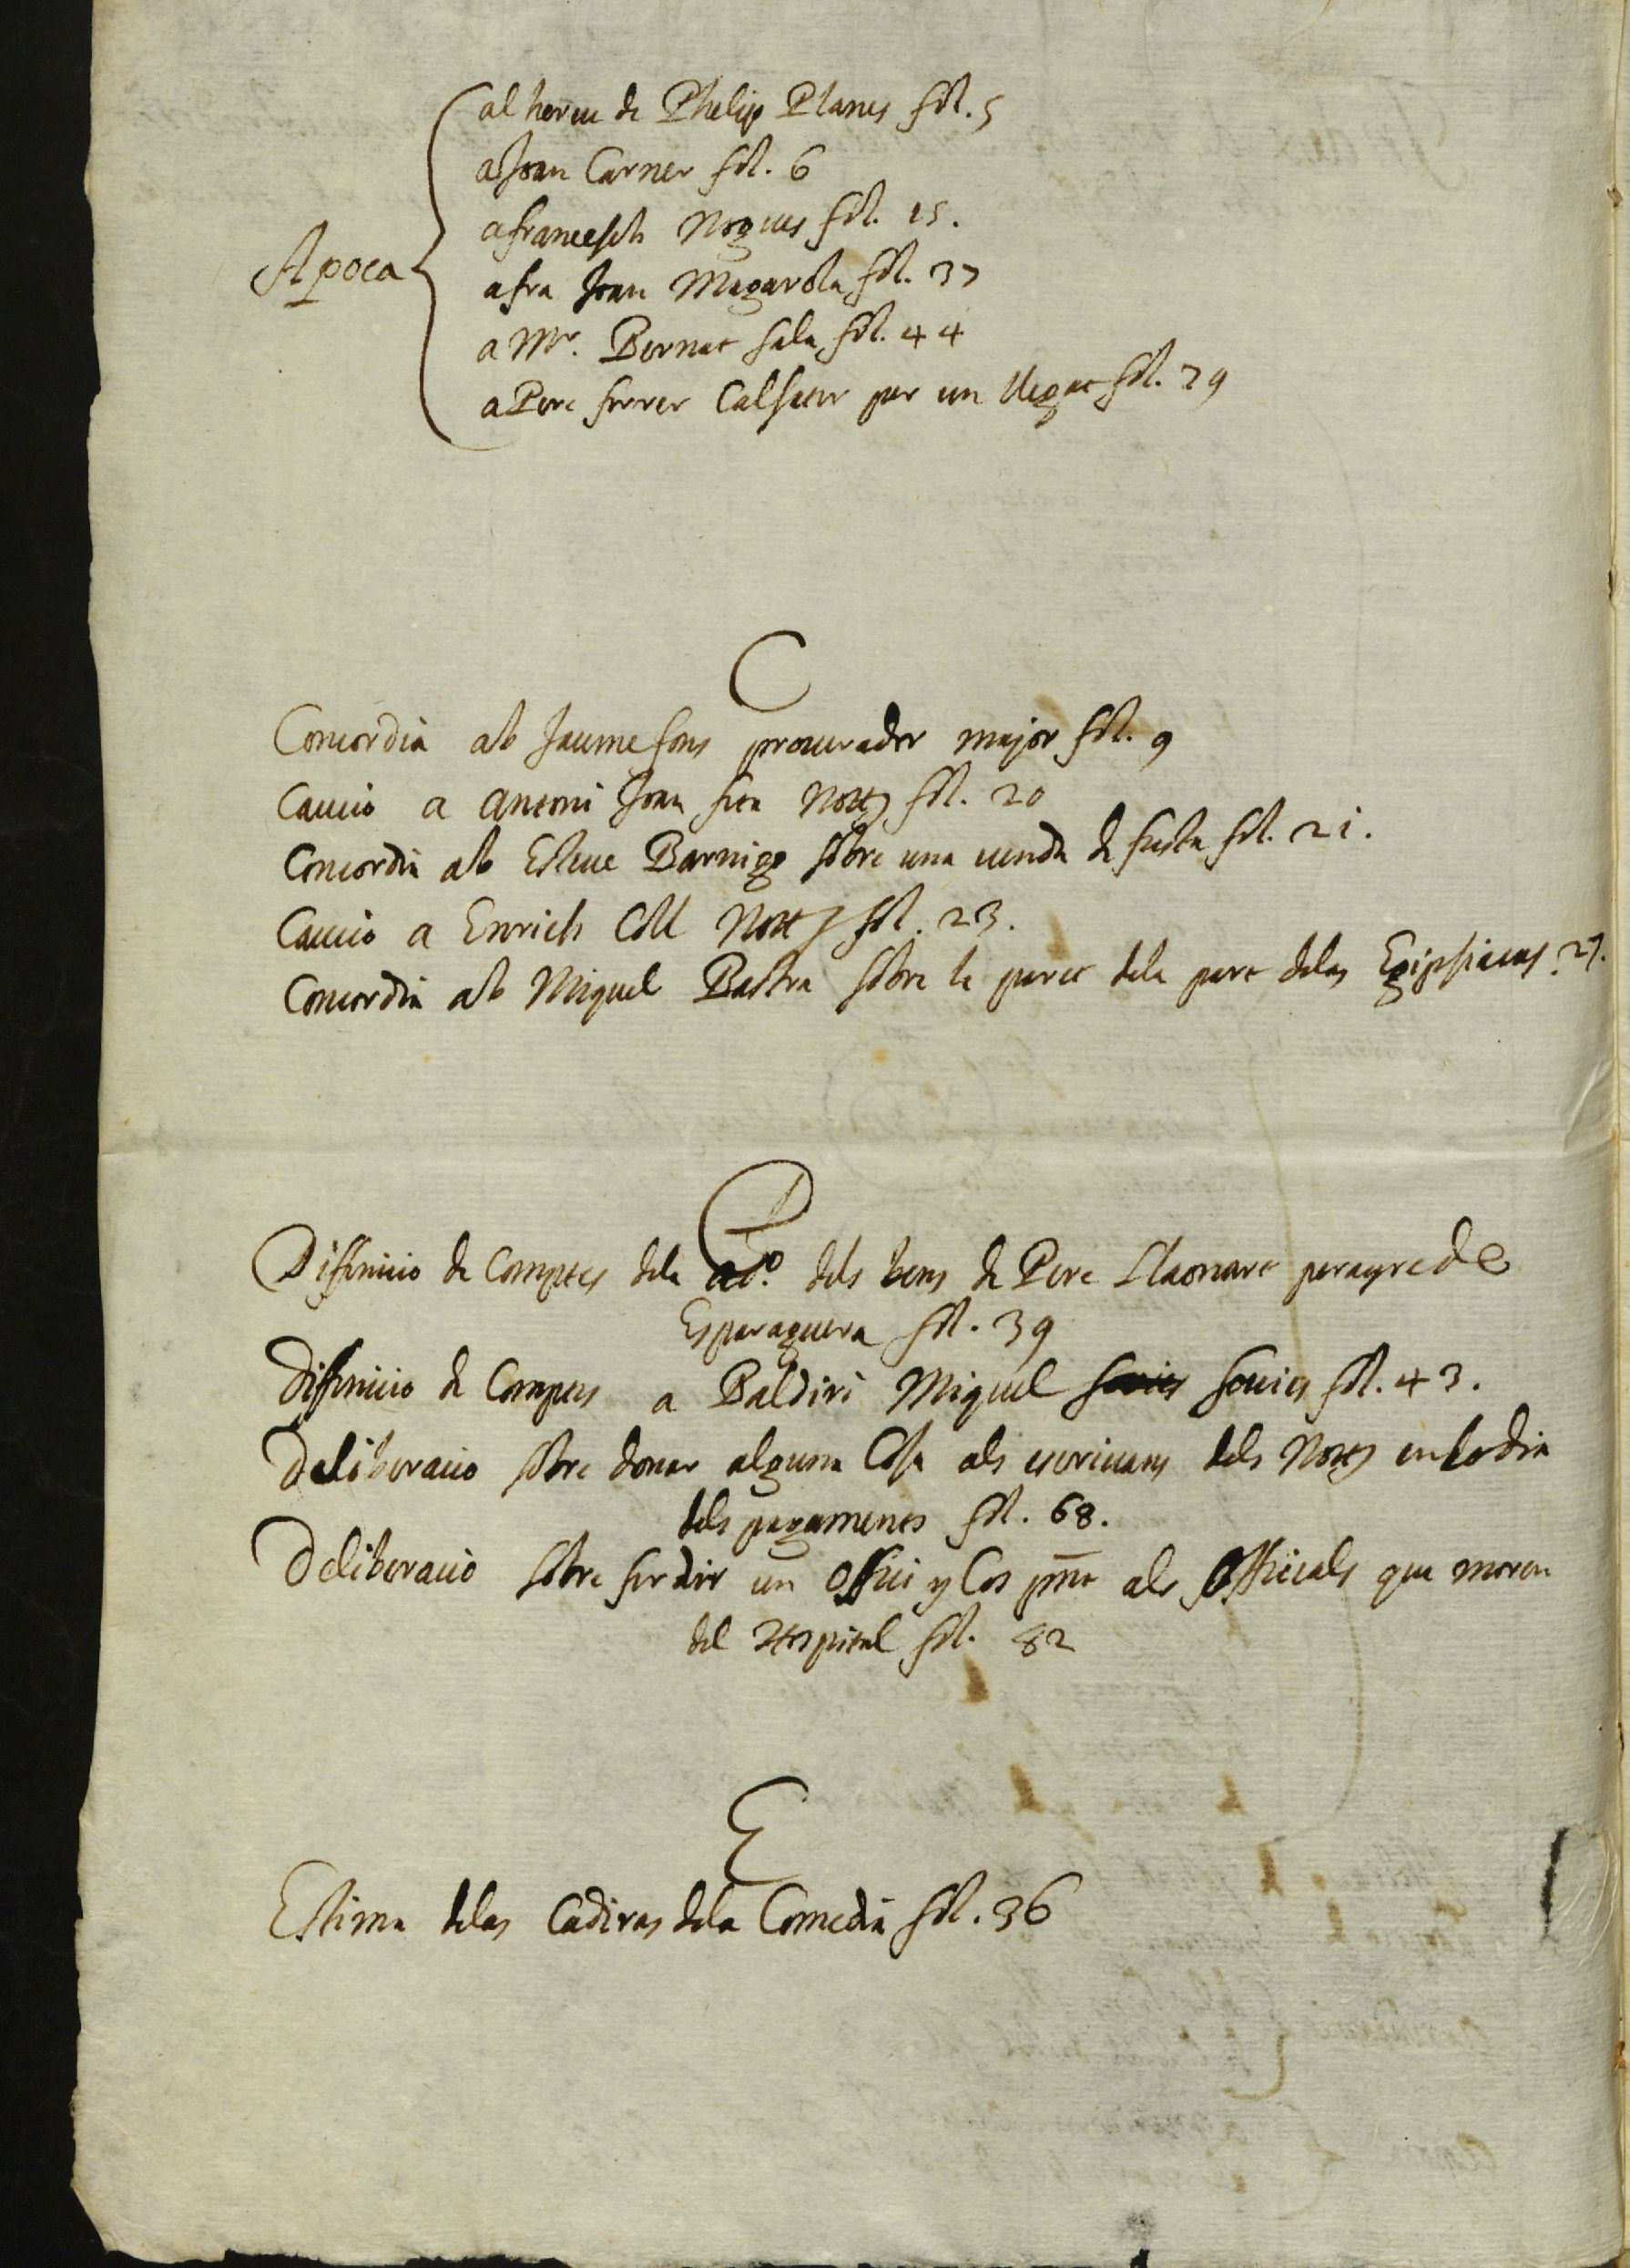 al hereu de Phelip Planes fol. 5
a Joan Carner fol. 6
a francesch Nogues fol. 15.
Apoca
a fra Joan Magarola fol. 37
a Mr. Bernat Sala fol. 44
a Pere ferrer Calseter per un llegat fol. 79
C
Concordia ab Jaume fons procurador major fol. 9
Caucio a Antoni Joan fita Nott fol. 20
Concordia ab Esteue Barnigo sobre una venda de fusta fol. 21.
Caucio a Enrich Coll Nott fol. 23.
Concordia ab Miquel Bastra sobre la paret dela part delas Egipsiacas. 27.
D
Diffinicio de Comptes dela ad.o dels bens de Pere Llaonart perayre de
Esparaguera fol. 39
Diffinicio de Comptes a Baldiri Miquel fouies fol. 43.
Deliberacio sobre donar alguna Cosa als escriuans dels Nots en lo dia
dels pagaments fol. 68.
Deliberacio sobre fer dir un Offici y Cos pnt als Officials que moren
del Hospital fol. 82
E
Estima delas Cadiras dela Comedia fol. 36